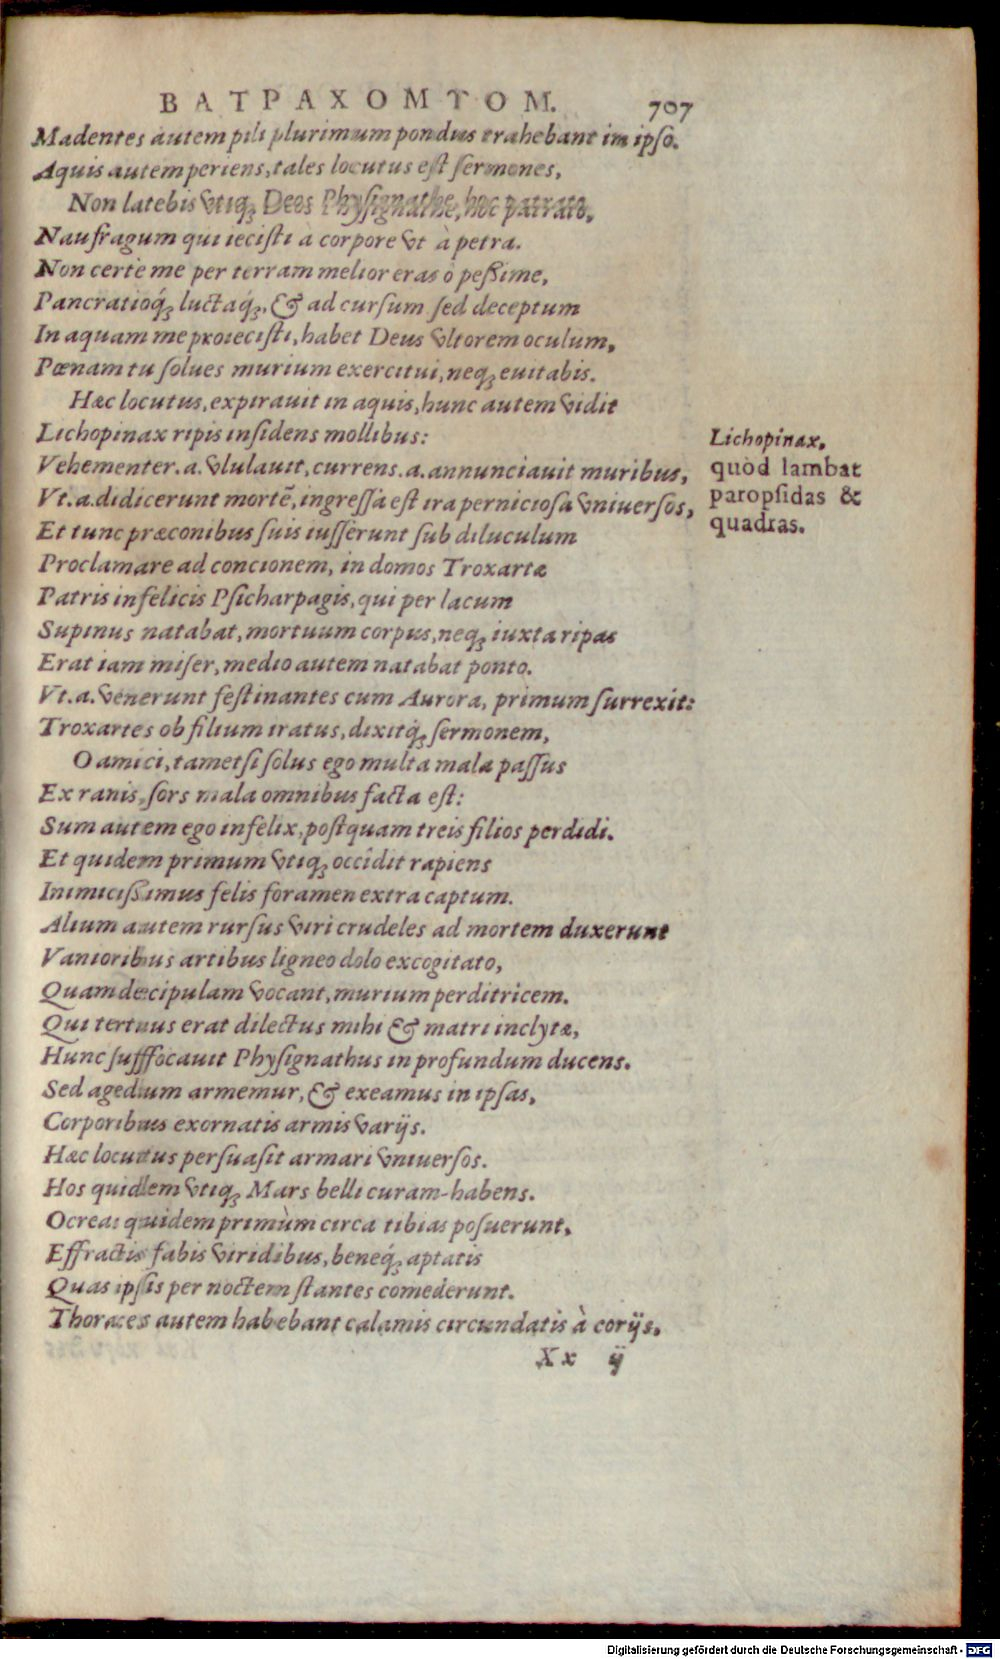 BATPAXOMTOM. 707
Madentes autem pili plurimum pondus trahebant im ipso.
Aquis autem periens, tales locutus est sermones,
Non latebis vtiqꝫ Deos Physignathe, hoc patrato,
Naufragum qui iecisti a corpore vt à petra.
Non certè me per terram melior eras ô peßime,
Pancratioqꝫ́ luctaqꝫ́, & ad cursum sed deceptum
In aquam me proiecisti, habet Deus vltorem oculum,
Pœnam tu solues murium exercitui, neqꝫ euitabis.
Hæc locutus, expirauit in aquis, hunc autem vidit
Lichopinax ripis insidens mollibus:
Vehementer.a. vlulauit, currens.a. annunciauit muribus,
Vt.a. didicerunt mortē, ingressa est ira perniciosa vniuersos,
Et tunc præconibus suis iusserunt sub diluculum
Proclamare ad concionem, in domos Troxartæ
Patris infelicis Psicharpagis, qui per lacum
Supinus natabat, mortuum corpus, neqꝫ iuxta ripas
Erat iam miser, medio autem natabat ponto.
Vt.a. venerunt festinantes cum Aurora, primum surrexit:
Troxartes ob filium iratus, dixitqꝫ́ sermonem,
O amici, tametsi solus ego multa mala passus
Ex ranis, sors mala omnibus facta est:
Sum autem ego infelix, postquam treis filios perdidi.
Et quidem primum vtiqꝫ occîdit rapiens
Inimicißimus felis foramen extra captum.
Alium autem rursus viri crudeles ad mortem duxerunt
Vanioribus artibus ligneo dolo excogitato,
Quam decipulam vocant, murium perditricem.
Qui tertuus erat dilectus mihi & matri inclytæ,
Hunc suffocauit Physignathus in profundum ducens.
Sed agedum armemur, & exeamus in ipsas,
Corporibus exornatis armis varijs.
Hæc locutus persuasit armari vniuersos.
Hos quidem vtiqꝫ Mars belli curam-habens.
Ocreas quidem primùm circa tibias posuerunt,
Effractis fabis viridibus, beneqꝫ́ aptatis
Quas ipsis per noctem stantes comederunt.
Thoraces autem habebant calamis circundatis à corijs,
Xx ij
Lichopinax,
quòd lambat
paropsidas &
quadras.
Digitalisierung gefördert durch die Deutsche Forschungsgemeinschaft - DFG